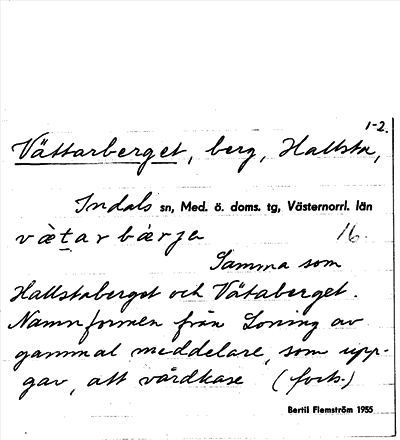 1-2.
Vättarberget, berg, Hallsta,
Indals sn, Med. ö. doms. tg, Västernorrl. län
vætarbærja 16.
Samma som
Hallstaberget och Vätaberget.
Namnformen från Loning av
gammal meddelare, som upp-
gav, att vårdkase (forts.)
Bertil Flemström 1955